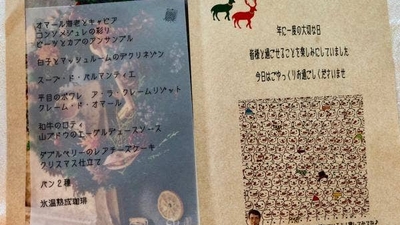 オマール海老とキャビア
コンソメジュレの彩り
ビーツとカブのアンサンブル
白子とマッシュルームのデクリネゾン
スープ・ド・パルマンティエ
平目のポワレ ア・ラ・クレームリゾット
クレーム・ド・オマール
和牛のロティ
山ブドウのエーグルデュースソース
ダブルベリーのレアチーズケーキ
クリスマス仕立て
パン2種
氷温熟成珈琲
年に一度の大切な日
皆様と過ごせることを楽しみにしていました
今日はごゆっくりお過ごしくださいませ